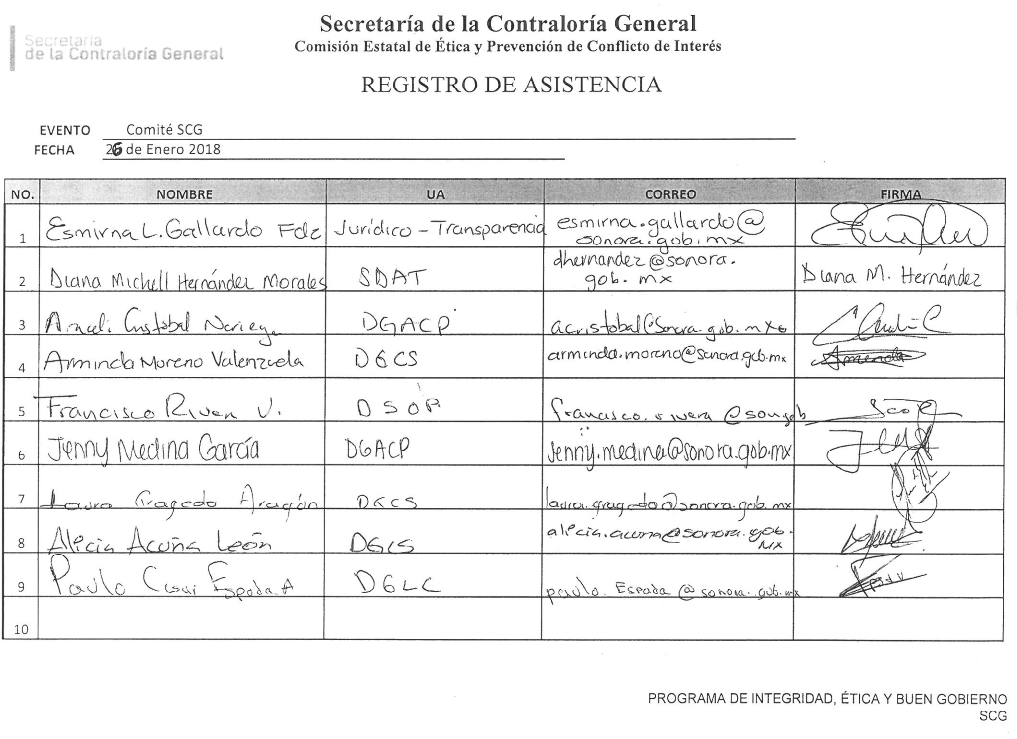 Secretaría de la Contraloría General
Comisión Estatal de Ética y Prevención de Conflicto de Interés
Secretaría
de la Contraloría General
REGISTRO DE ASISTENCIA
EVENTO Comité SCG
FECHA 26 de Enero 2018
NO. NOMBRE UA CORREO FIRMA
1 Esmirna L. Gallardo Fdz Jurídico - Transparencia esmirna.gallardo@
sonora.gob.mx
2 Diana Michell Hernández Morales SDAT dhernandez@sonora.
gob.mx Diana M. Hernández
3 Araceli Cristobal Noriega DGACP acristobal@sonora.gob.mx
4 Arminda Moreno Valenzuela DGCS arminda.moreno@sonora.gob.mx Arminda
5 Francisco Rivera V. DSOP francisco.rivera@son.gob
6 Jenny Medina García DGACP jenny.medina@sonora.gob.mx
7 Laura Gragedo Aragón DGCS laura.gragedo@sonora.gob.mx
8 Alicia Acuña León DGCS alicia.acuna@sonora.gob.
mx
9 Paulo Espada A DGLC paulo.Espada@sonora.gob.mx
10
PROGRAMA DE INTEGRIDAD, ÉTICA Y BUEN GOBIERNO
SCG